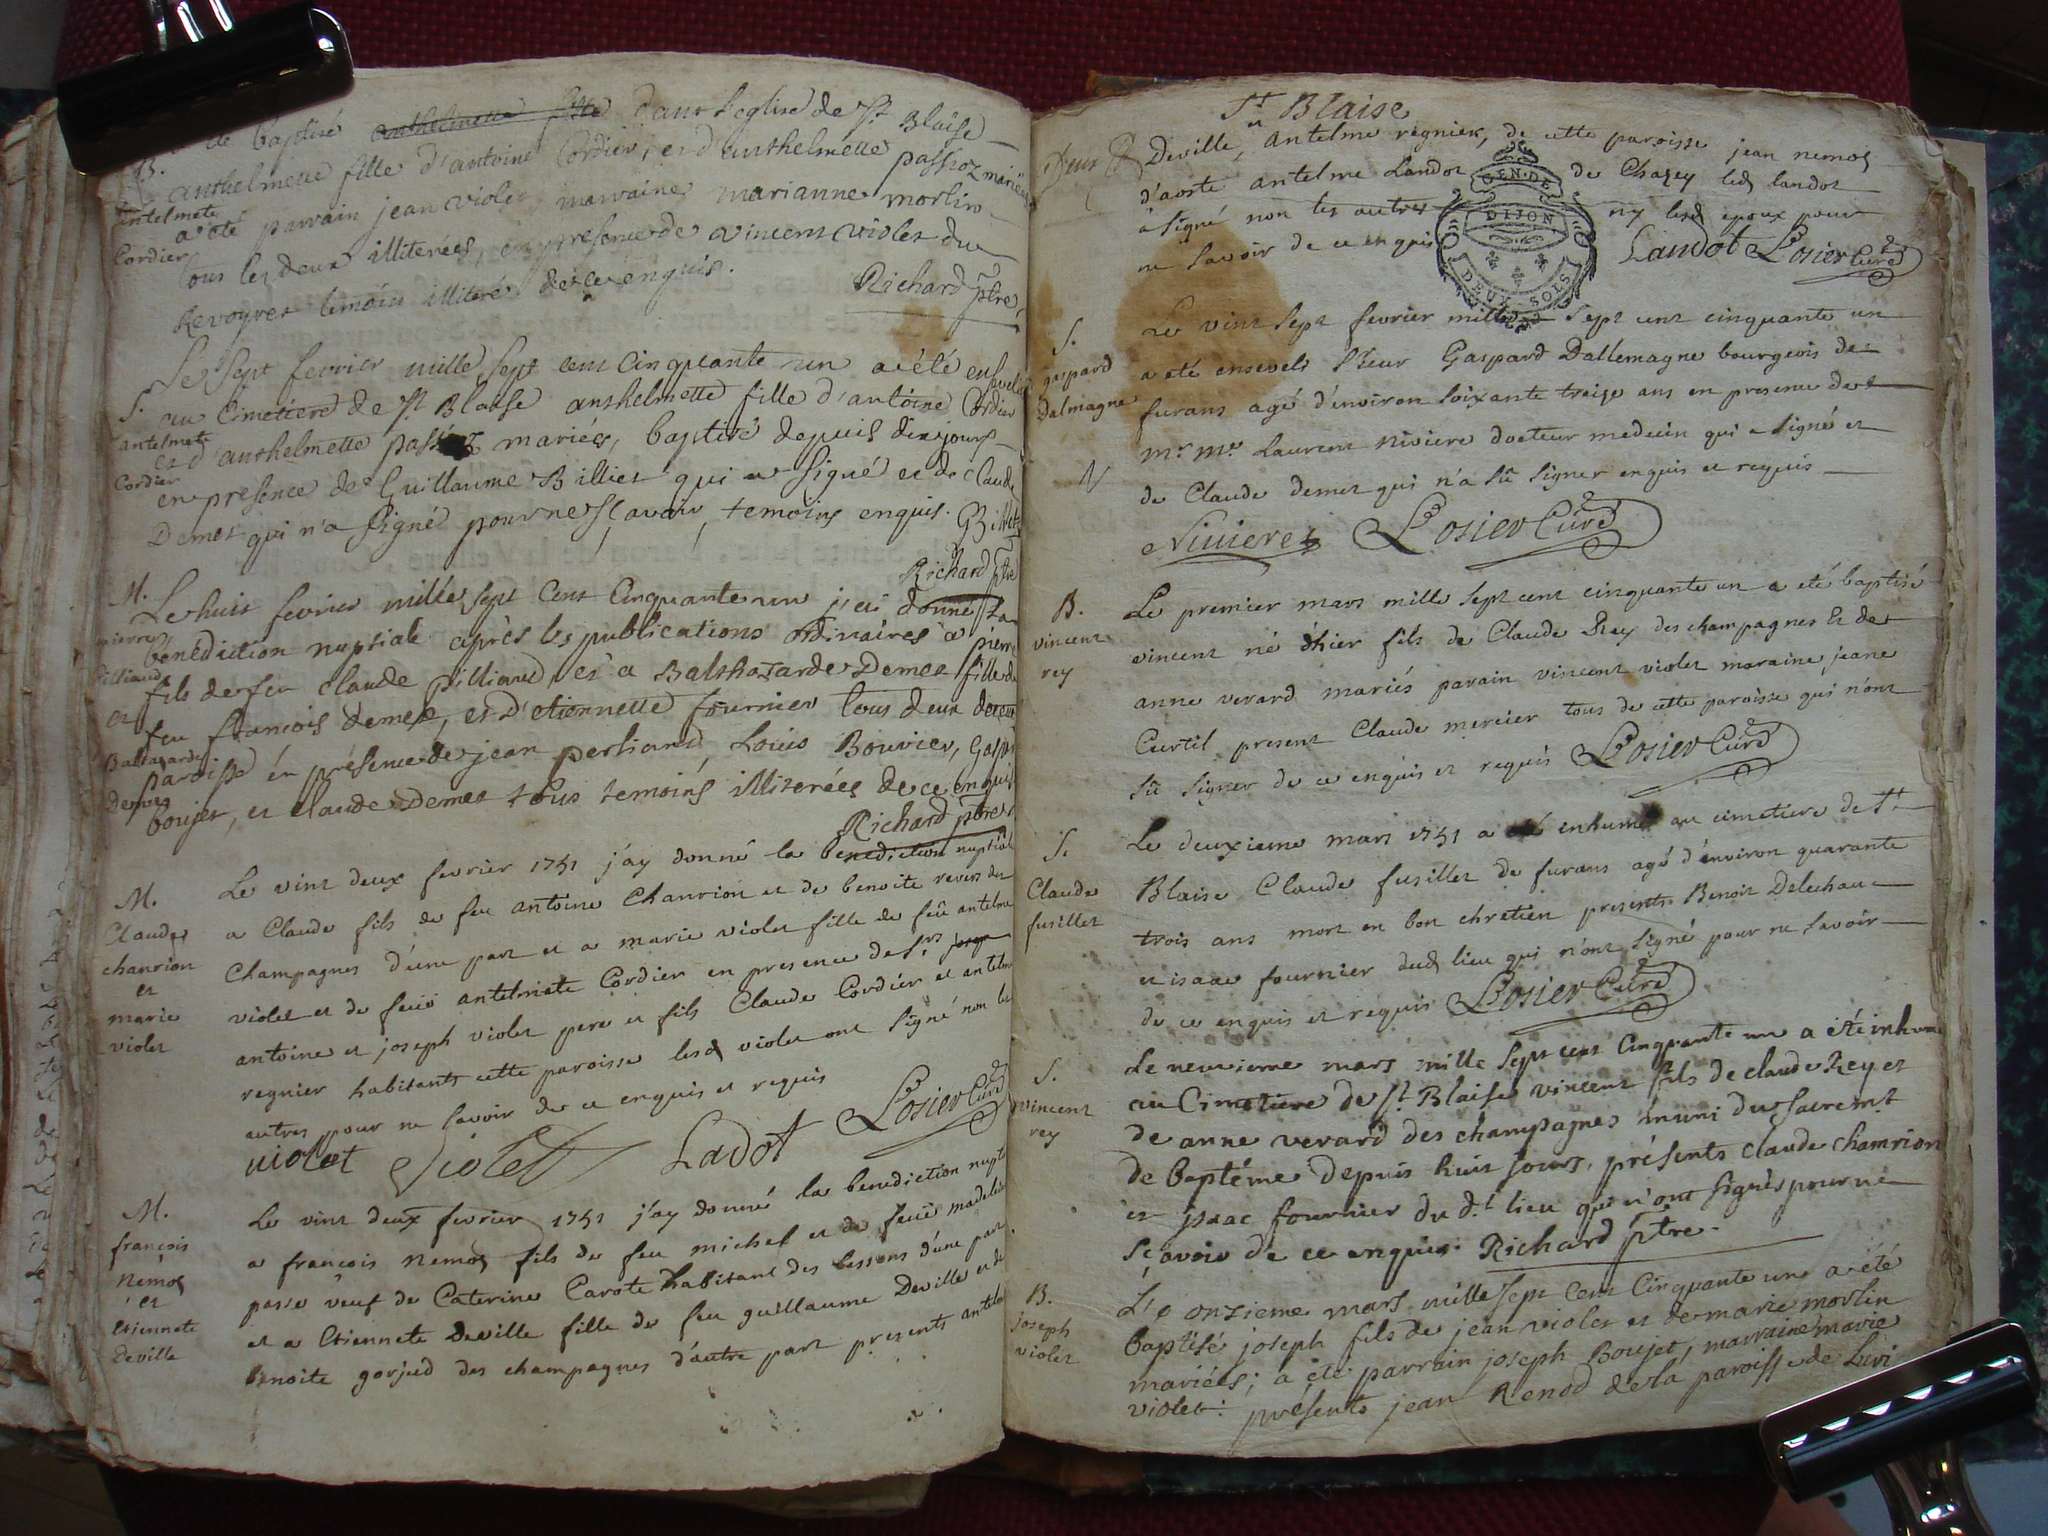 B.
de baptisé anthelmette fille dans l'eglise de St Blaise
anthelmette fille d'antoine Cordier, et d'anthelmette passoz mariés
antelmete
Cordier
a été parrain jean violet marraine marianne morlin
tous les deux illiterées, en presence de vincent violet du
Revoyret temoin illiteré de ce enquis.
Richard ptre
Le sept fevrier mille sept cent cinquante un a été ensveli
S.
antelmete
Cordier
au Cimetiere de St Blaise anthelmette fille d'antoine Cordier
et d'anthelmette mariés, baptisé depuis dix jours
en presence de Guillaume Billiet qui a signé et de Claude
Demet qui n'a signé pour ne sçavoir, temoins enquis. GBilliet
Richard ptre
M.
pierre
pilliand
et
Baltazarde
demet
Le huit fevrier mille sept cent Cinquante un j'ai donné la
benediction nuptiale après les publications ordinaires a pierre
fils de feu claude pilliand, et a Balthazarde Demet fille de
feu françois demet, et d'etiennette fournier tous deux de cette
paroisse en présence de jean perliand, Louis Bouvier, Gaspard
boujet, et claude Demet tous temoins illiterées de ce enquis
Richard ptre
M.
Claude
chanrion
et
marie
violet
Le vint deux fevrier 1751 j'ay donné la benediction nuptiale
a Claude fils de feu antoine Chanrion et de benoite revers des
Champagnes d'une part et a marie violet fille de feû antelme
violet et de feüe antelmete Cordier en presence de Srs
antoine et joseph violet pere et fils Claude Cordier et antelme
regnier habitants cette paroisse lesd violet ont signé non les
autres pour ne savoir de ce enquis et requis
violet Violet Ladot Losier Curé
M.
françois
nemoz
et
etiennete
deville
Le vint deux fevrier 1751 j'ay donné la benediction nuptiale
a françois nemoz fils de feu michel et de feüe madeleine
passe veuf de Caterine Carote habitant des lessons d'une part
et a Etiennete Deville fille de feu guillaume Deville et de
benoite gorjud des champagnes d'autre part presents antelme
St Blaise
Deville, antelme regnier, de cette paroisse jean nemoz
d'aoste antelme Landot de Chazey led landot
a signé non les autres ny lesd epoux pour
ne savoir de ce enquis Landot Losier Curé
GEN. DE
DIJON
DEUX SOLS
S.
gaspard
Dalmagne
Le vint sept fevrier mille sept cent cinquante un
a eté enseveli Sieur Gaspard Dallemagne bourgeois de
furans agé d'environ soixante treize ans en presence de
mr. me. Laurent Niviere docteur medecin qui a signé et
de Claude demet qui n'a sû signer enquis et requis
Niviere Losier Curé
B.
vincent
rey
Le premier mars mille sept cent cinquante un a eté baptisé
vincent né hier fils de Claude Rey des champagnes et de
anne verard mariés parain vincent violet maraine jeane
Curtil present Claude mercier tous de cette paroisse qui n'ont
sû signer de ce enquis et requis Losier Curé
S.
Claude
fusillet
Le deuxieme mars 1751 a eté enhumé au cimetiere de St
Blaise Claude fusillet de furans agé d'environ quarante
trois ans mort en bon chretien presents Benoit Delechau
et isaac fournier dud lieu qui n'ont signé pour ne savoir
de ce enquis et requis Losier Curé
S.
vincent
rey
Le neuvieme mars mille sept cent Cinquante un a été inhumé
au Cimetiere de St Blaise vincent fils de claude Rey et
de anne verard des champagnes muni du sacremt
de baptême depuis huit jours, présents claude chamrion
et isaac fournier du d.t lieu qui n'ont signés pour ne
sçavoir de ce enquis. Richard ptre.
B.
joseph
violet
Le onzieme mars mille sept cent Cinquante un a été
baptisé joseph fils de jean violet et de marie morlin
mariées; a été parrain joseph Boujet, marraine marie
violet. présents jean Renod de la paroisse de